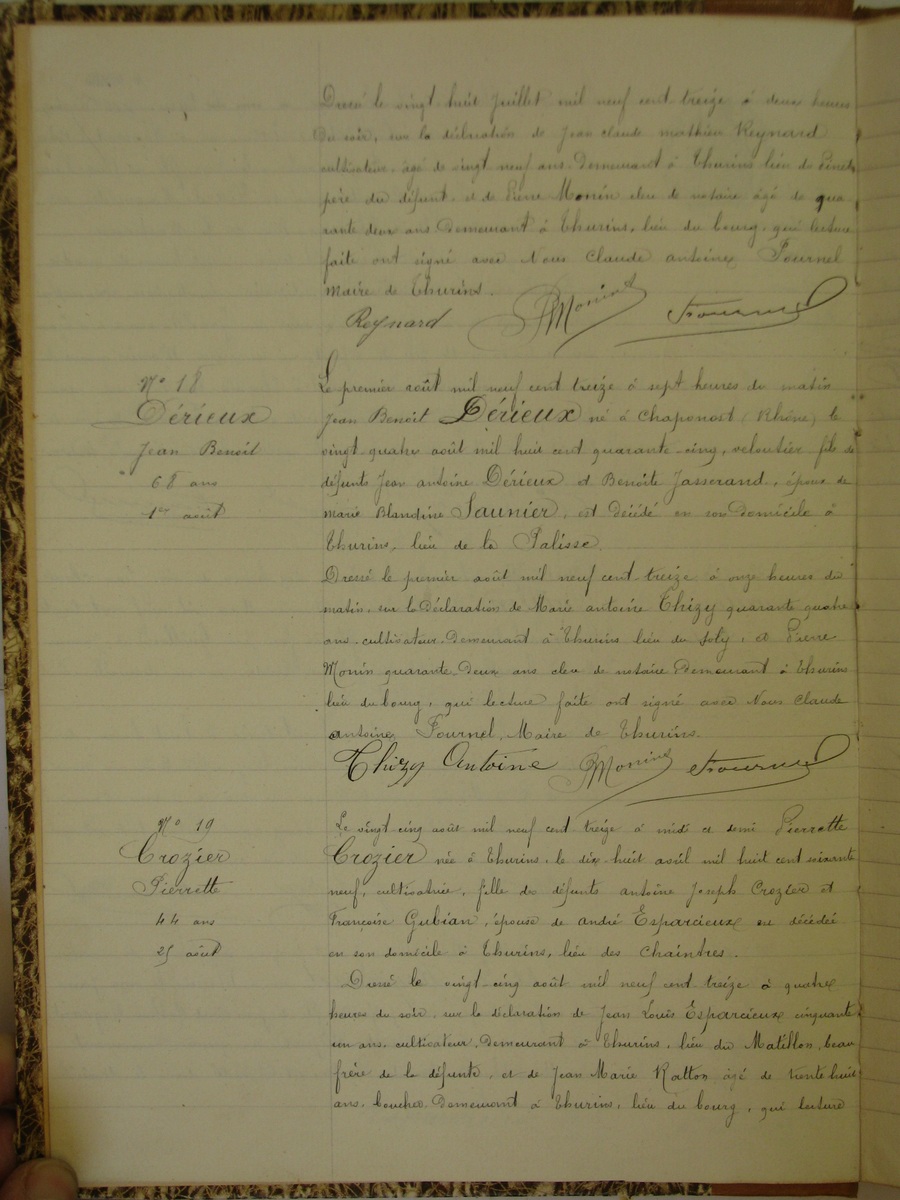 Dressé le vingt huit Juillet mil neuf cent treize à deux heures
du soir, sur la déclaration de Jean claude mathieu Reynard
cultivateur, âgé de vingt neuf ans. Demeurant à Thurins lieu de
père du défunt et de Pierre Monin clerc de notaire âgé de qua
rante deux ans Demeurant à Thurins, lieu du bourg, qui lecture
faite ont signé avec Nous Claude antoine Fournel
Maire de Thurins.
Reynard PMonin Fournel
No 18
Dérieux
Jean Benoit
68 ans
1er août
Le premier août mil neuf cent treize à sept heures du matin
Jean Benoit Dérieux né à Chaponost (Rhône) le
vingt-quatre août mil huit cent quarante-cinq, veloutier fils de
défunts Jean antoine Dérieux et Benoite Jasserand, époux de
marie Blandine Saunier, est décédé en son domicile à
Thurins, lieu de la Palisse.
Dressé le premier août mil neuf cent-treize à onze heures du
matin, sur la Déclaration de Marie antoine Thizy quarante quatre
ans. cultivateur. Demeurant à Thurins lieu du Joly, et Pierre
Monin quarante Deux ans clerc de notaire Demeurant à Thurins
lieu du bourg, qui lecture faite ont signé avec Nous Claude
antoine Fournel, Maire de Thurins.
Thizy Antoine PMonin Fournel
No 19
Crozier
Pierrette
44 ans
25 août
Le vingt-cinq août mil neuf cent treize à midi et demi Pierrette
Crozier née à Thurins, le dix huit avril mil huit cent soixante
neuf, cultivatrice, fille des défunts antoine Joseph Crozier et
Françoise Gubian, épouse de andré Esparcieux est décédée
en son domicile à Thurins, lieu des Chaintres.
Dressé le vingt-cinq août mil neuf cent-treize à quatre
heures du soir, sur la déclaration de Jean Louis Esparcieux cinquante
un ans. cultivateur. Demeurant à Thurins, lieu du Matillon, beau
frère de la défunte, et de Jean Marie Ratton âgé de trente huit
ans. boucher Demeurant à Thurins, lieu du bourg, qui lecture